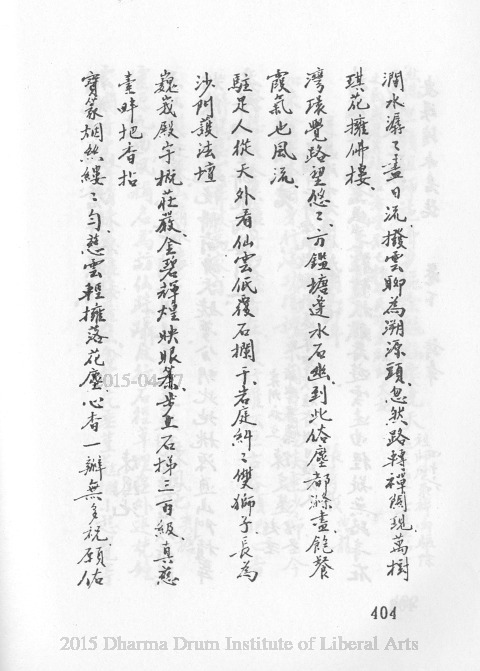 澗水潺々盡日流.撥雲聊為溯源頭.忽然路轉禪關現.萬樹
琪花擁佛樓.
灣環覺路望悠々.方鑑塘邊水石幽.到此俗塵都滌盡.飽餐
霞氣也風流.
駐足人從天外看.仙雲低覆石欄干.岩庭糾々雙獅子.長為
沙門護法壇
巍峩殿宇概莊嚴.金碧輝煌映眼簾.步上石梯三百級.真慈
畔把香拈
寶篆烟絲縷々勻.慈雲輕擁落花塵.心香一瓣無多祝.願佑
404
2015-04-27
2015 Dharma Drum Institute of Liberal Arts